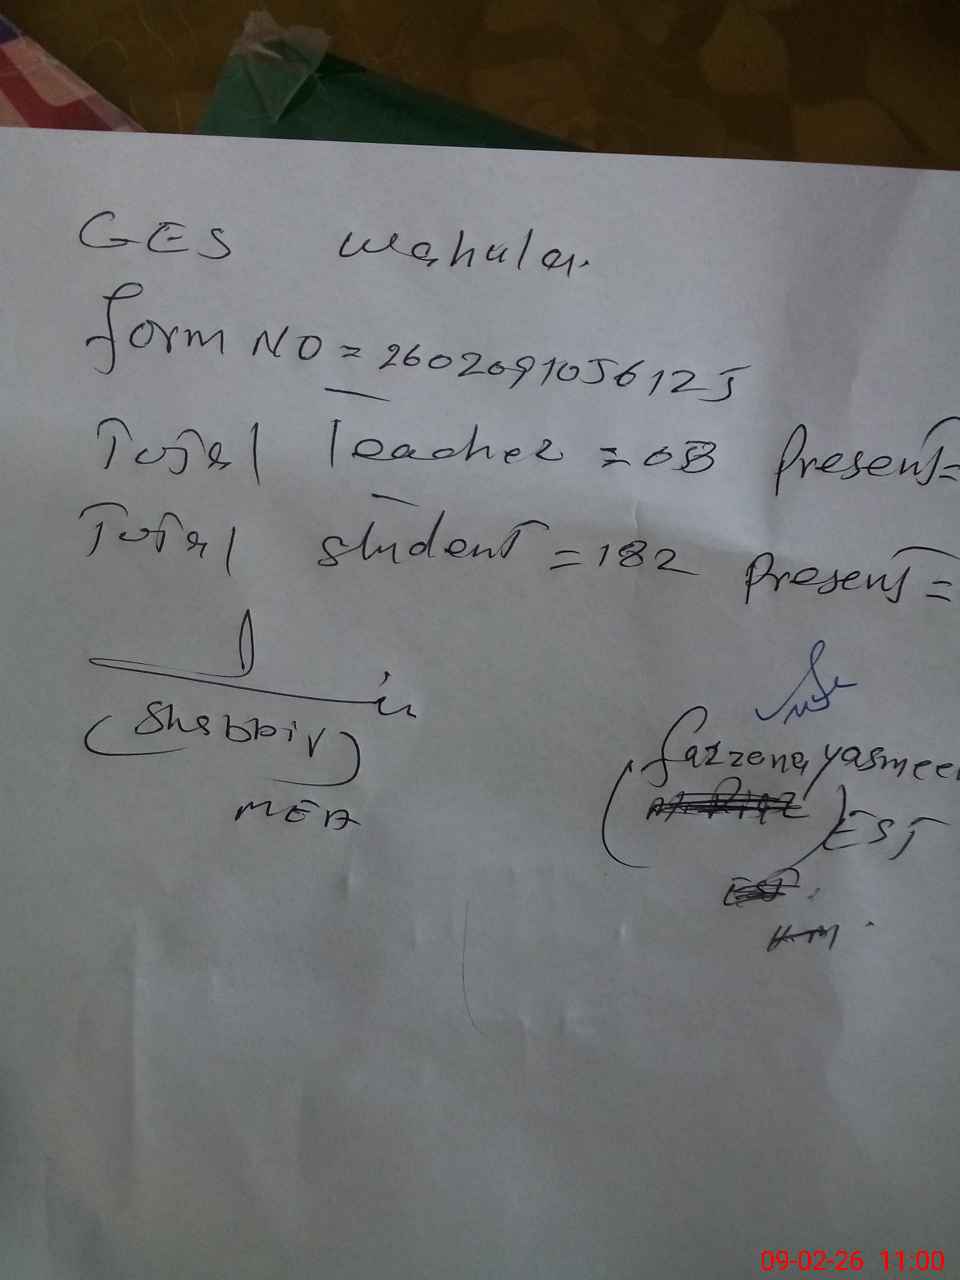 GES Wahula.
form NO = 2602091056125
Total Teacher = 08 Present =
Total student = 182 Present =
(Shabbir)
MEA
(farzena yasmeen
) EST
EST
HM
09-02-26 11:00